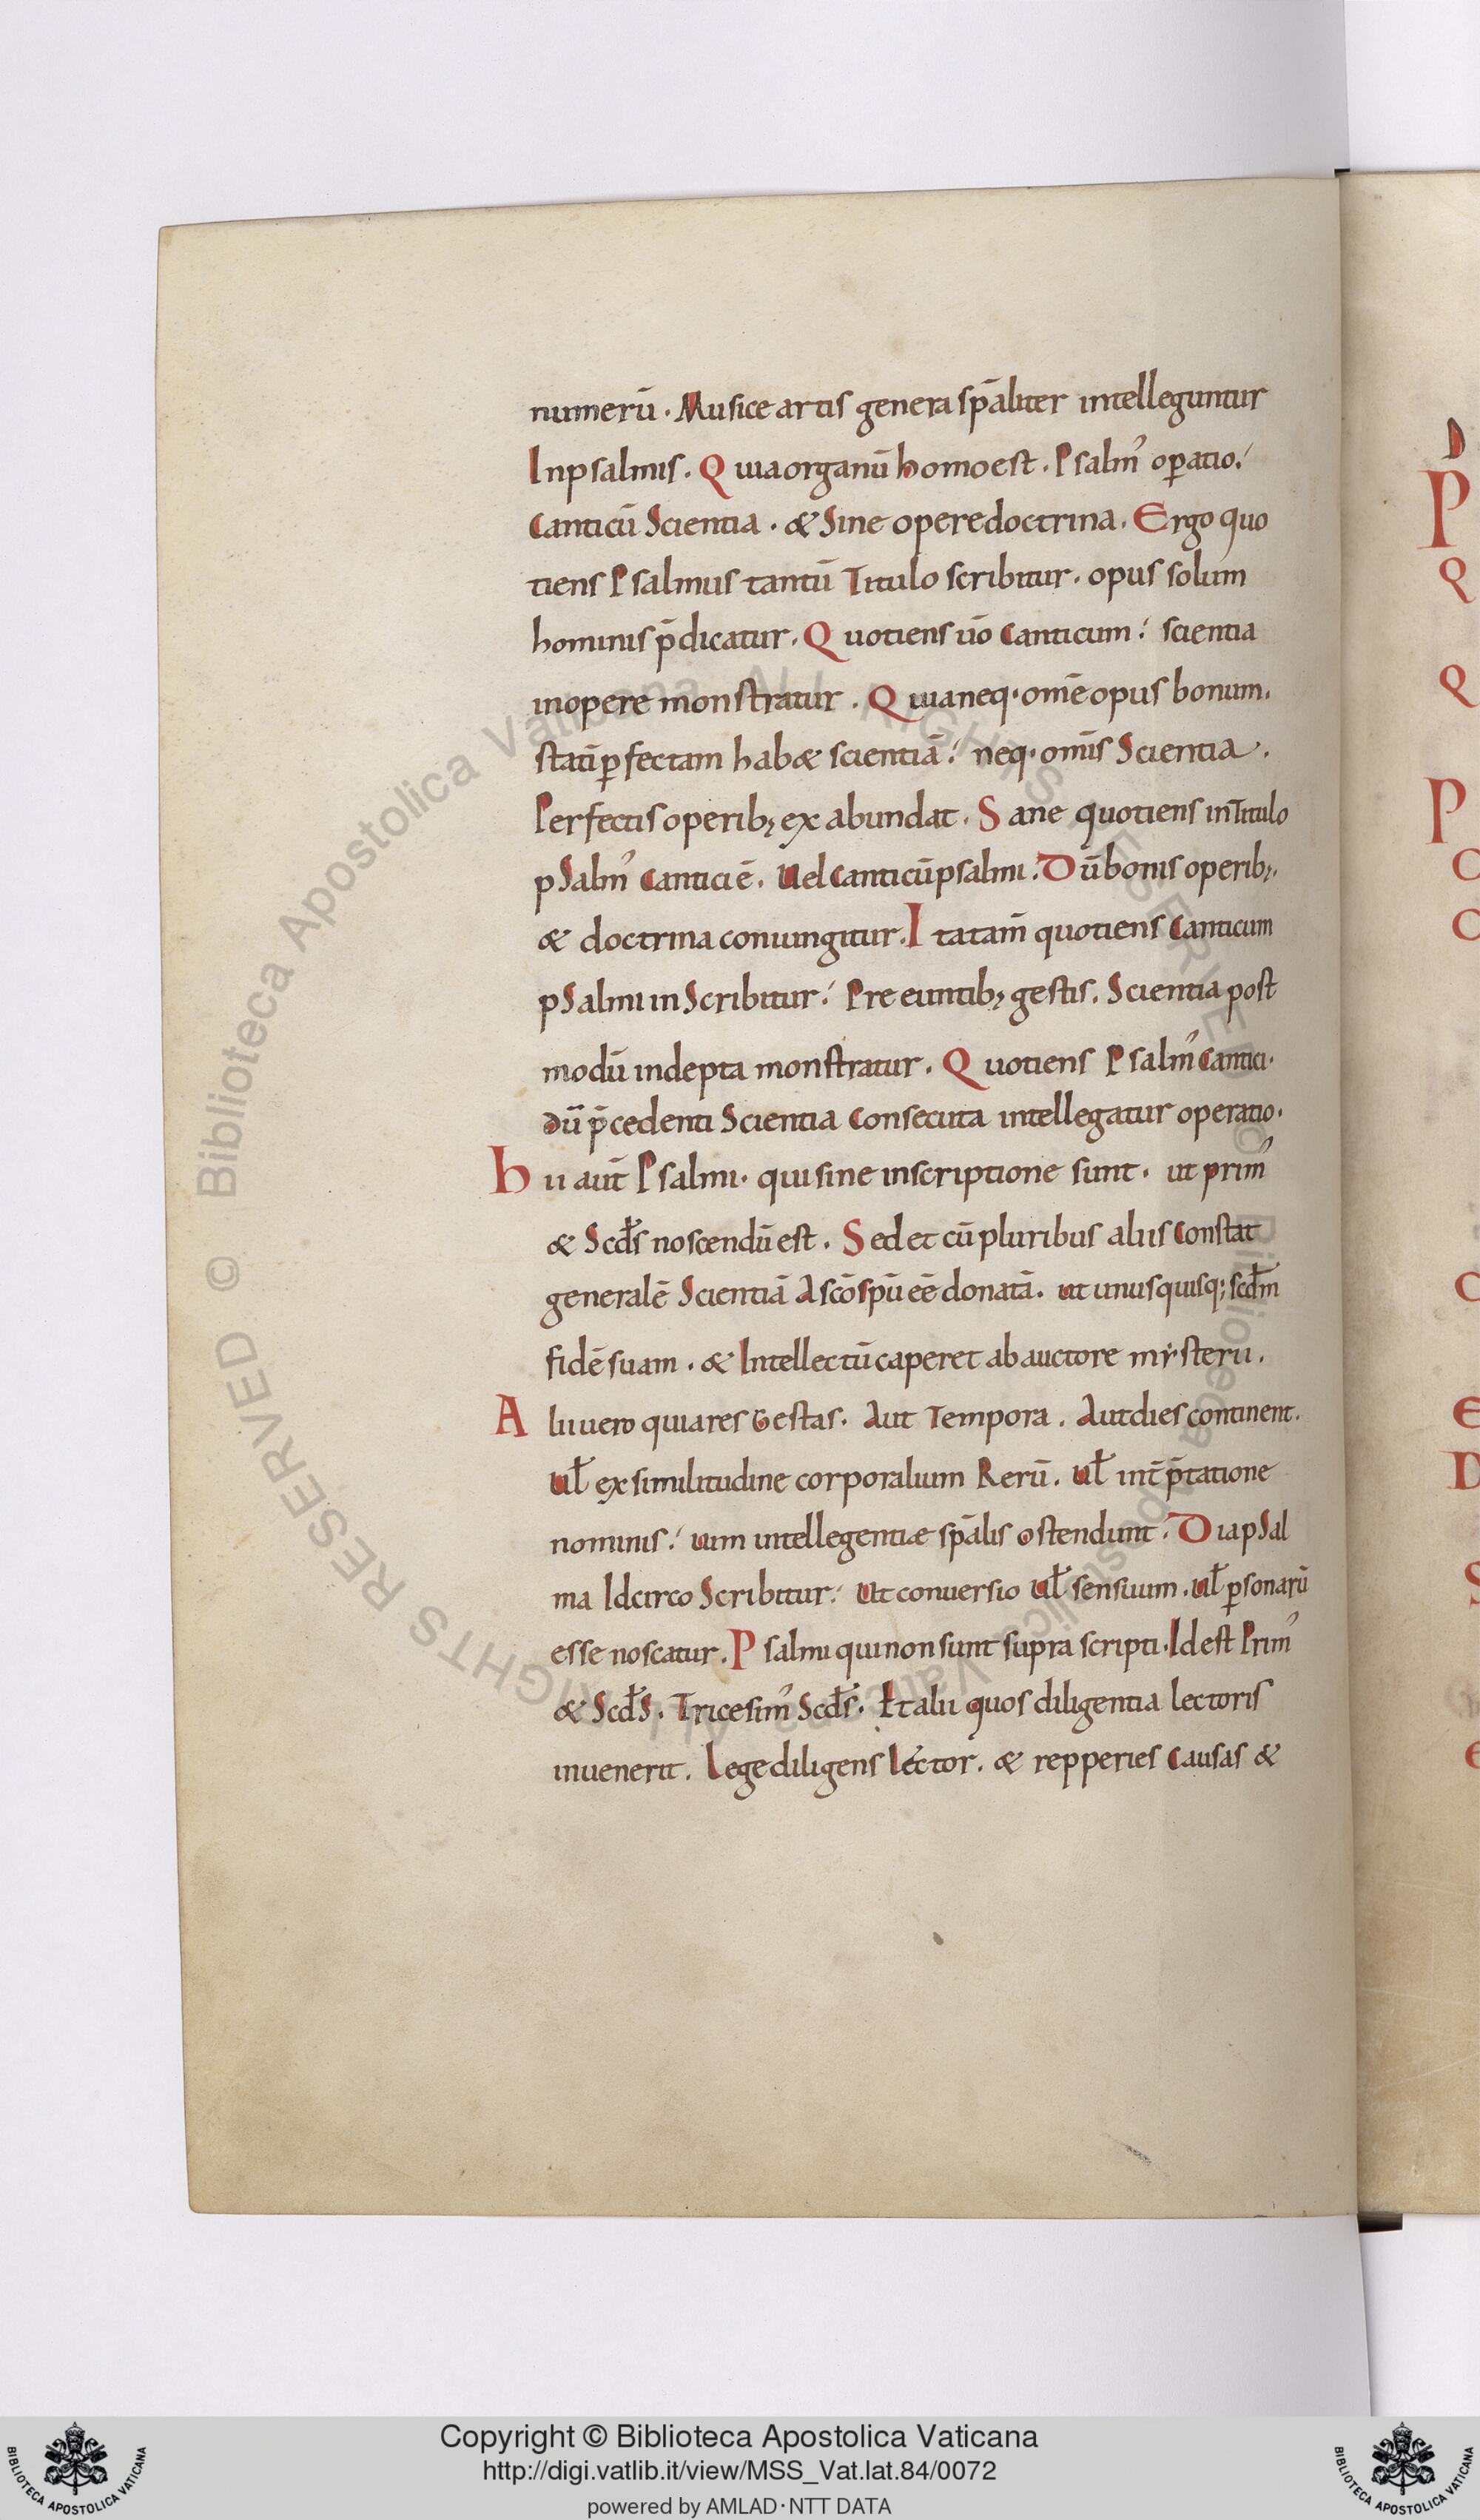 numerū. Musice artis genera spāliter intelleguntur
Inpsalmis. Quia organū homo est. Psalm' oꝑatio.
Canticū Scientia. & Sine opere doctrina. Ergo quo
tiens Psalmus tantū Titulo scribitur. opus solum
hominis p̄dicatur. Quotiens ūo Canticum: scientia
inopere monstratur. Quia neq· omē opus bonum.
statī ꝑfectam hab& scientiā: neq· omīs Scientia.
Perfectis operib; ex abundat. Sane quotiens in Titulo
pSalm' Cantici ē. Uel Canticū psalmi. Dū bonis operib;.
& doctrina coniungitur. Ita tam̄ quotiens Canticum
pSalmi inScribitur: Pre euntib; gestis. Scientia post
modū indepta monstratur. Quotiens Psalm' Cantici·
dū p̄cedenti Scientia Consecuta intellegatur operatio.
hii aūt Psalmi. qui sine inscriptione sunt. ut prim'
& Scđs noscendū est. Sed et cū pluribus aliis Constat
generalē Scientiā A scō spū eē donatā. ut unusquisq; scđm
fidē suam. & Intellectū caperet ab auctore mẏsterii.
Alii uero quia res Gestas. Aut Tempora. Aut dies continent.
Uł ex similitudine corporalium Rerū. Uł int̄p̄tatione
nominis: uim intellegentiæ spālis ostendunt: DiapSal
ma Idcirco Scribitur: Ut conuersio Uł sensuum. Uł ꝑsonarū
esse noscatur. Psalmi qui non sunt supra scripti. Id est Prim'
& Scđs. Tricesim' Scđs. Et alii quos diligentia lectoris
inuenerit. Lege diligens Lector. & repperies Causas &
P
Q
Q
P
C
C
C
e
D
S
e
© Biblioteca Apostolica Vaticana ALL RIGHTS RESERVED © Biblioteca Apostolica Vaticana ALL RIGHTS RESERVED
BIBLIOTECA APOSTOLICA VATICANA
Copyright © Biblioteca Apostolica Vaticana
http://digi.vatlib.it/view/MSS_Vat.lat.84/0072
powered by AMLAD·NTT DATA
BIBLIOTECA APOSTOLICA VATICANA